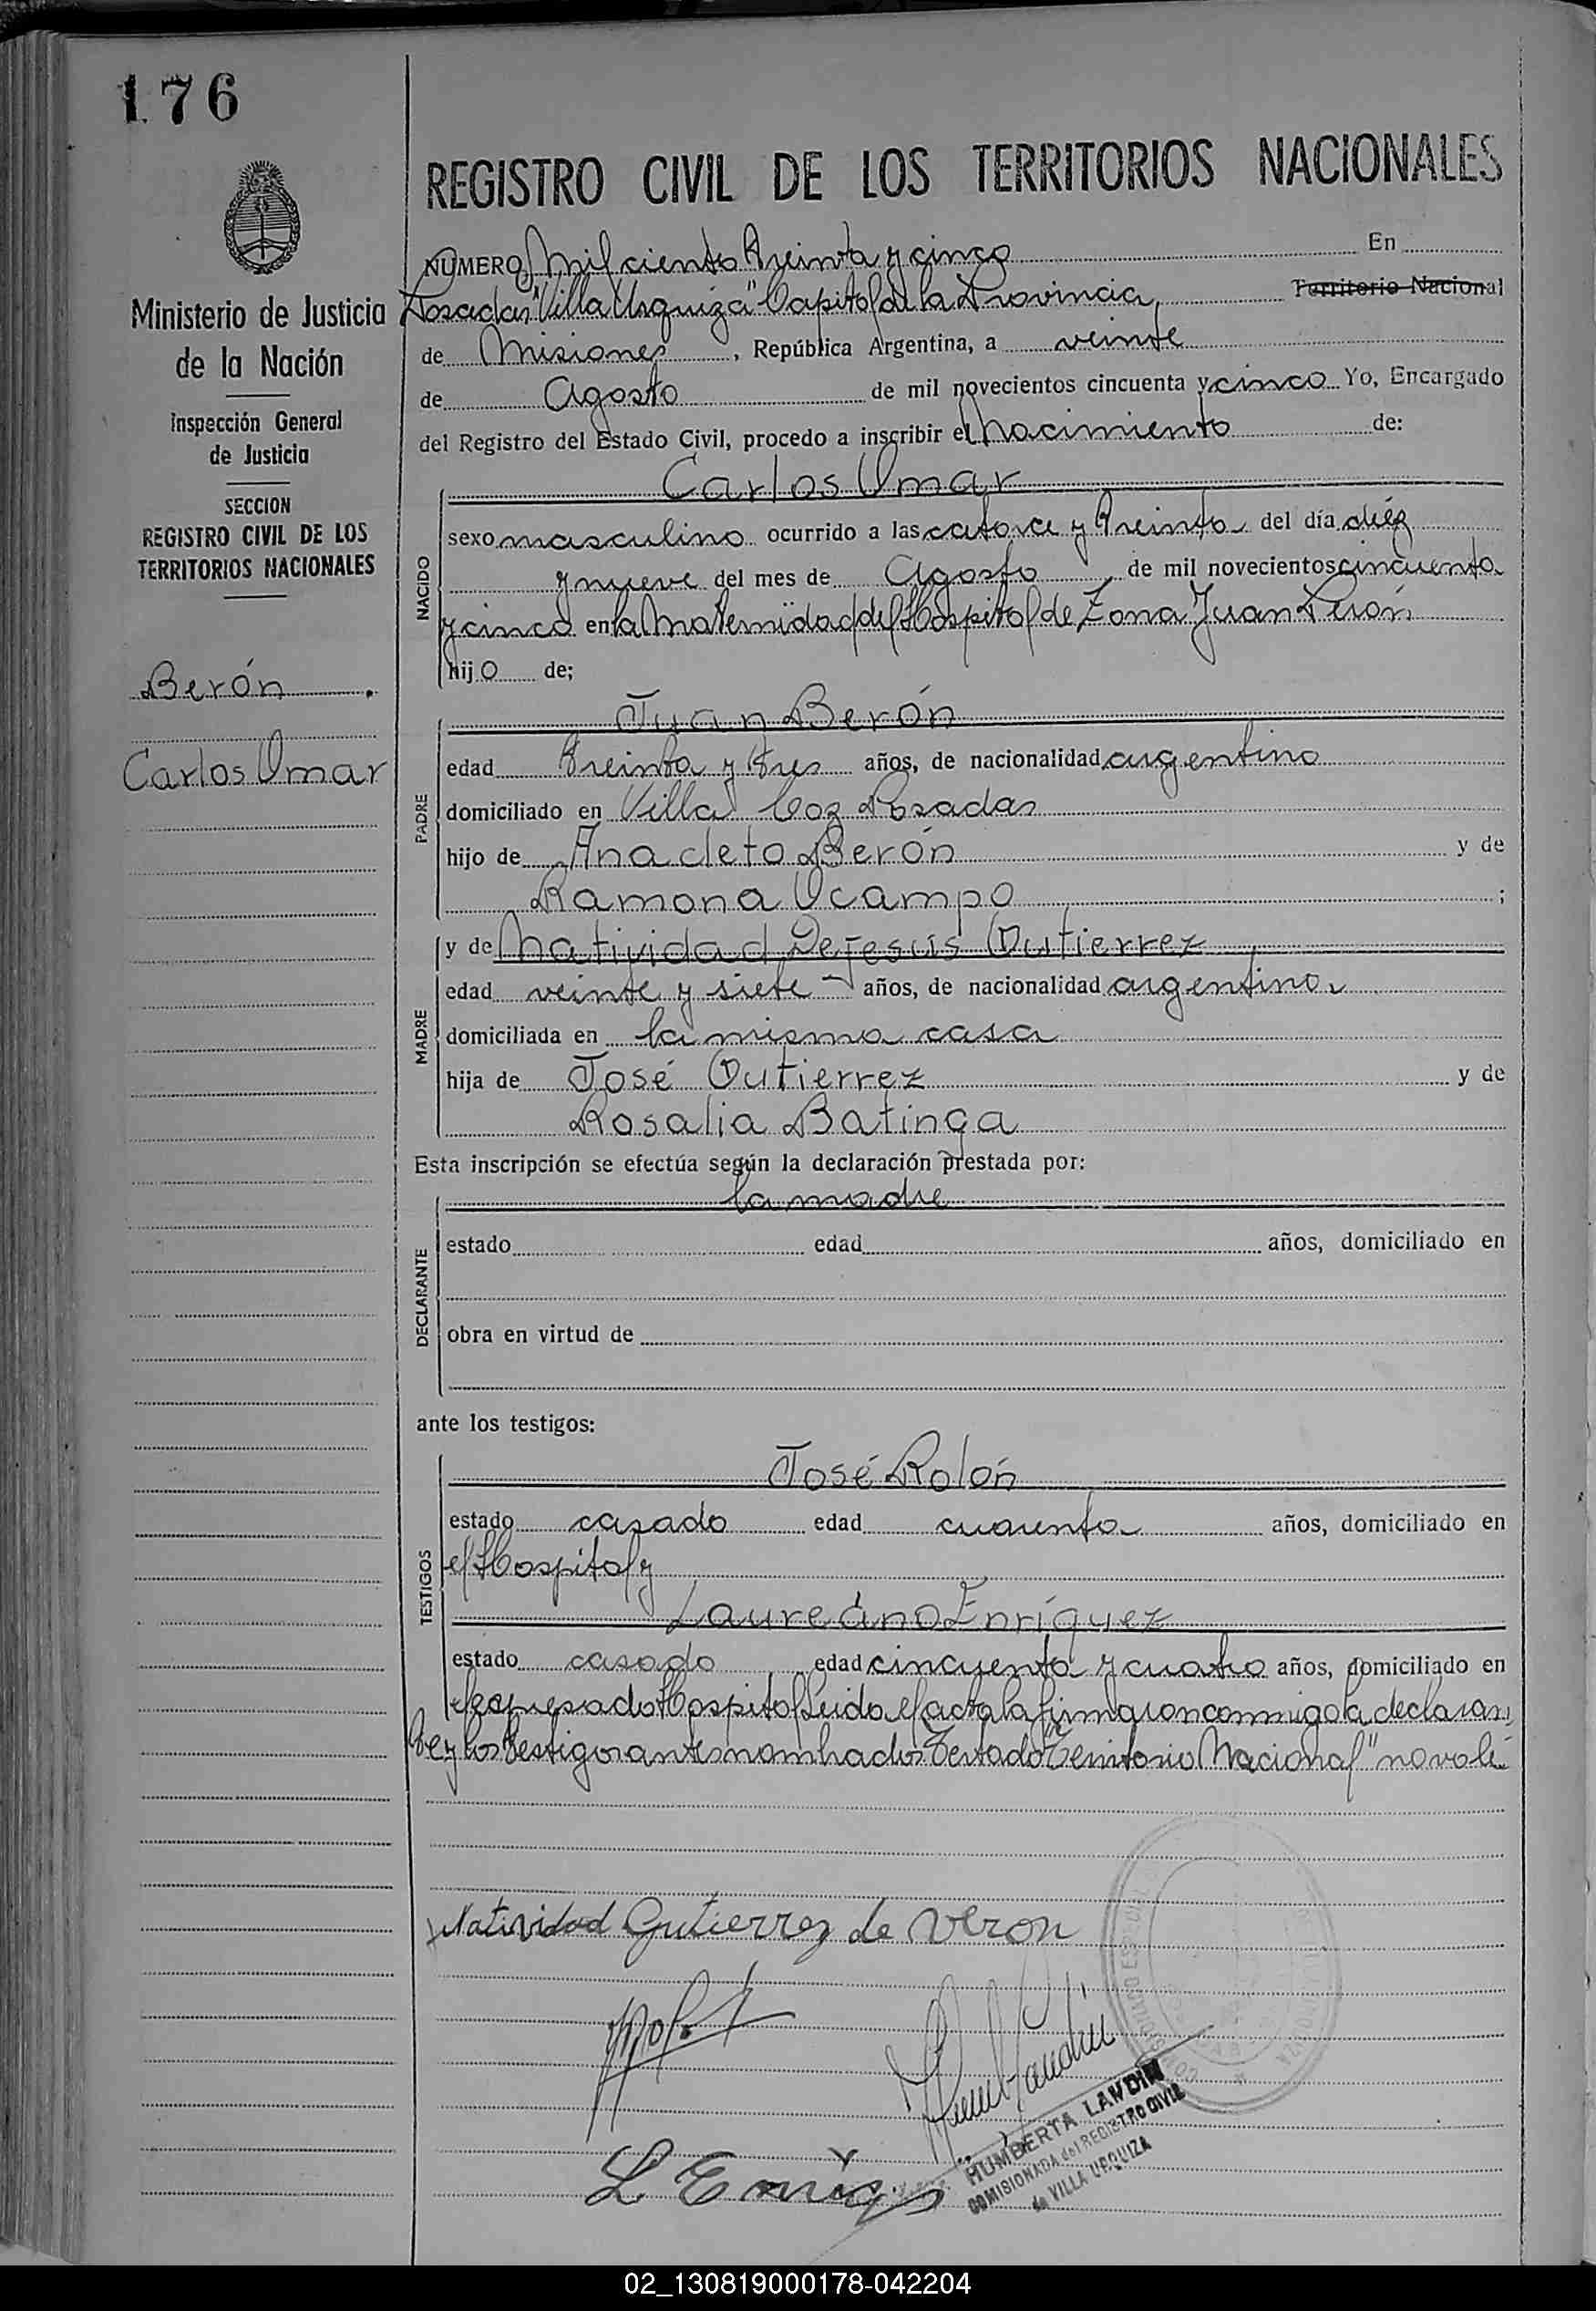 176
REGISTRO CIVIL DE LOS TERRITORIOS NACIONALES
Ministerio de Justicia
de la Nación
Inspección General
de Justicia
SECCION
REGISTRO CIVIL DE LOS
TERRITORIOS NACIONALES
Berón
Carlos Omar
NUMERO Mil ciento treinta y cinco En
Posadas "Villa Urquiza" Capital de la Provincia, Territorio Nacional
de Misiones, República Argentina, a veinte
de Agosto de mil novecientos cincuenta y cinco Yo, Encargado
del Registro del Estado Civil, procedo a inscribir el Nacimiento de:
NACIDO
Carlos Omar
sexo masculino ocurrido a las catorce y treinta del día diez
y nueve del mes de Agosto, de mil novecientos cincuenta
y cinco en la Maternidad del Hospital de Zona Juan Perón
hijo de;
PADRE
Juan Berón
edad treinta y tres años, de nacionalidad argentino
domiciliado en Villa Coz Posadas
hijo de Anacleto Berón y de
Ramona Ocampo ;
MADRE
y de Natividad Dejesús Gutierrez
edad veinte y siete años, de nacionalidad argentina
domiciliada en la misma casa
hija de José Gutierrez y de
Rosalia Batinga
Esta inscripción se efectúa según la declaración prestada por:
DECLARANTE
la madre
estado edad años, domiciliado en
obra en virtud de
ante los testigos:
TESTIGOS
José Rolón
estado casado edad cuarenta años, domiciliado en
el Hospital y
Laureano Enríquez
estado casado edad cincuenta y cuatro años, domiciliado en
el expresado Hospital Leida el acta la firmaron conmigo la declaran
te y los testigos antes nombrados. Testado "Territorio Nacional" no vale
Natividad Gutierrez de Veron
L Enriq
HUMBERTA LANDIN
COMISIONADA del REGISTRO CIVIL
de VILLA URQUIZA
02_130819000178-042204